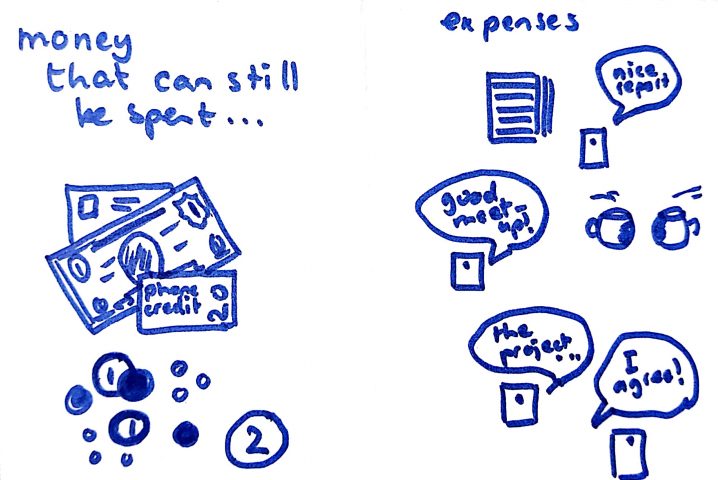 money
that can still
be spent...
1
1
phone
credit
20
1
1
2
expenses
nice
report
good
meet-
up!
the
project...
I
agree!